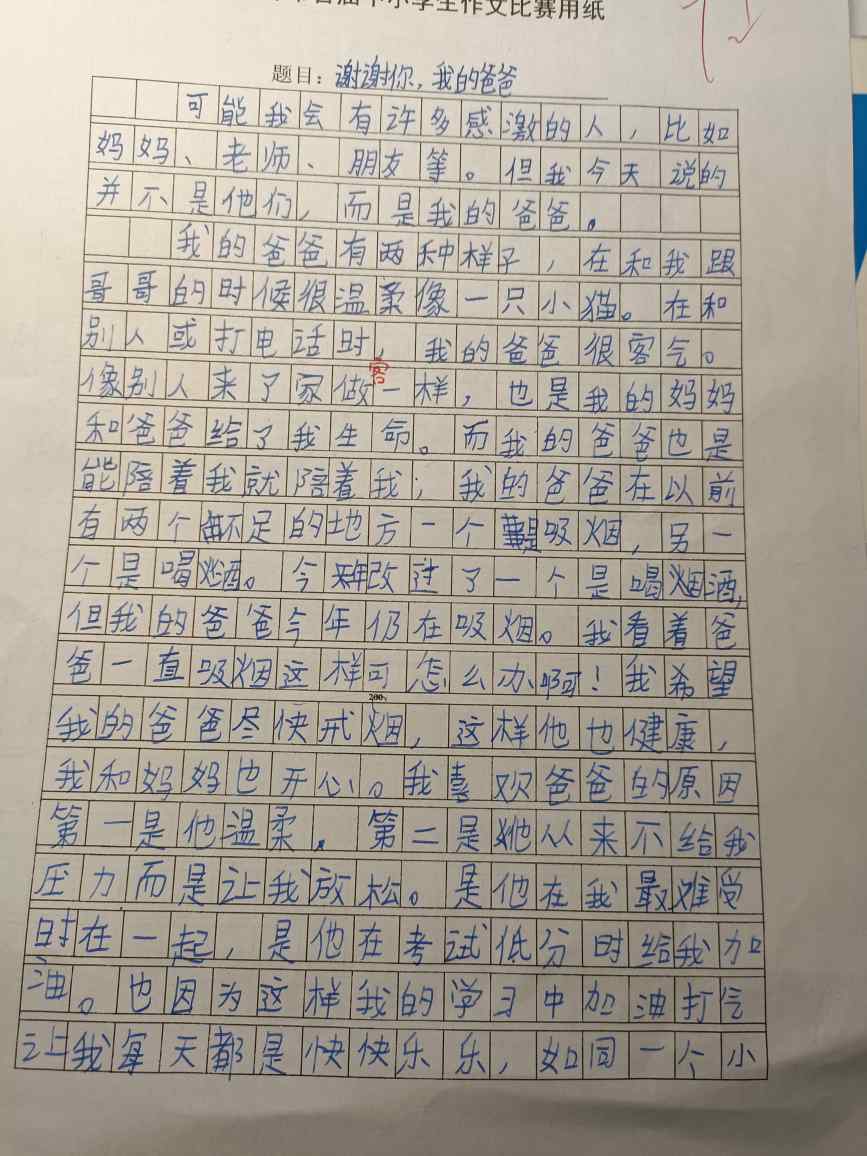 首届中小学生作文比赛用纸
题目：谢谢你，我的爸爸
可能我会有许多感激的人，比如
妈妈、老师、朋友等。但我今天说的
并不是他们，而是我的爸爸。
我的爸爸有两种样子，在和我跟
哥哥的时候很温柔像一只小猫。在和
别人或打电话时，我的爸爸很客气。
像别人来了家做客一样，也是我的妈妈
和爸爸给了我生命。而我的爸爸也是
能陪着我就陪着我；我的爸爸在以前
有两个不足的地方一个是吸烟，另一
个是喝酒。今年改过了一个是喝酒，
但我的爸爸今年仍在吸烟。我看着爸
爸一直吸烟这样可怎么办啊！我希望
200
我的爸爸尽快戒烟，这样他也健康，
我和妈妈也开心。我喜欢爸爸的原因
第一是他温柔。第二是她从来不给我
压力而是让我放松。是他在我最难受
时在一起，是他在考试低分时给我加
油。也因为这样我的学习中加油打气
让我每天都是快快乐乐，如同一个小